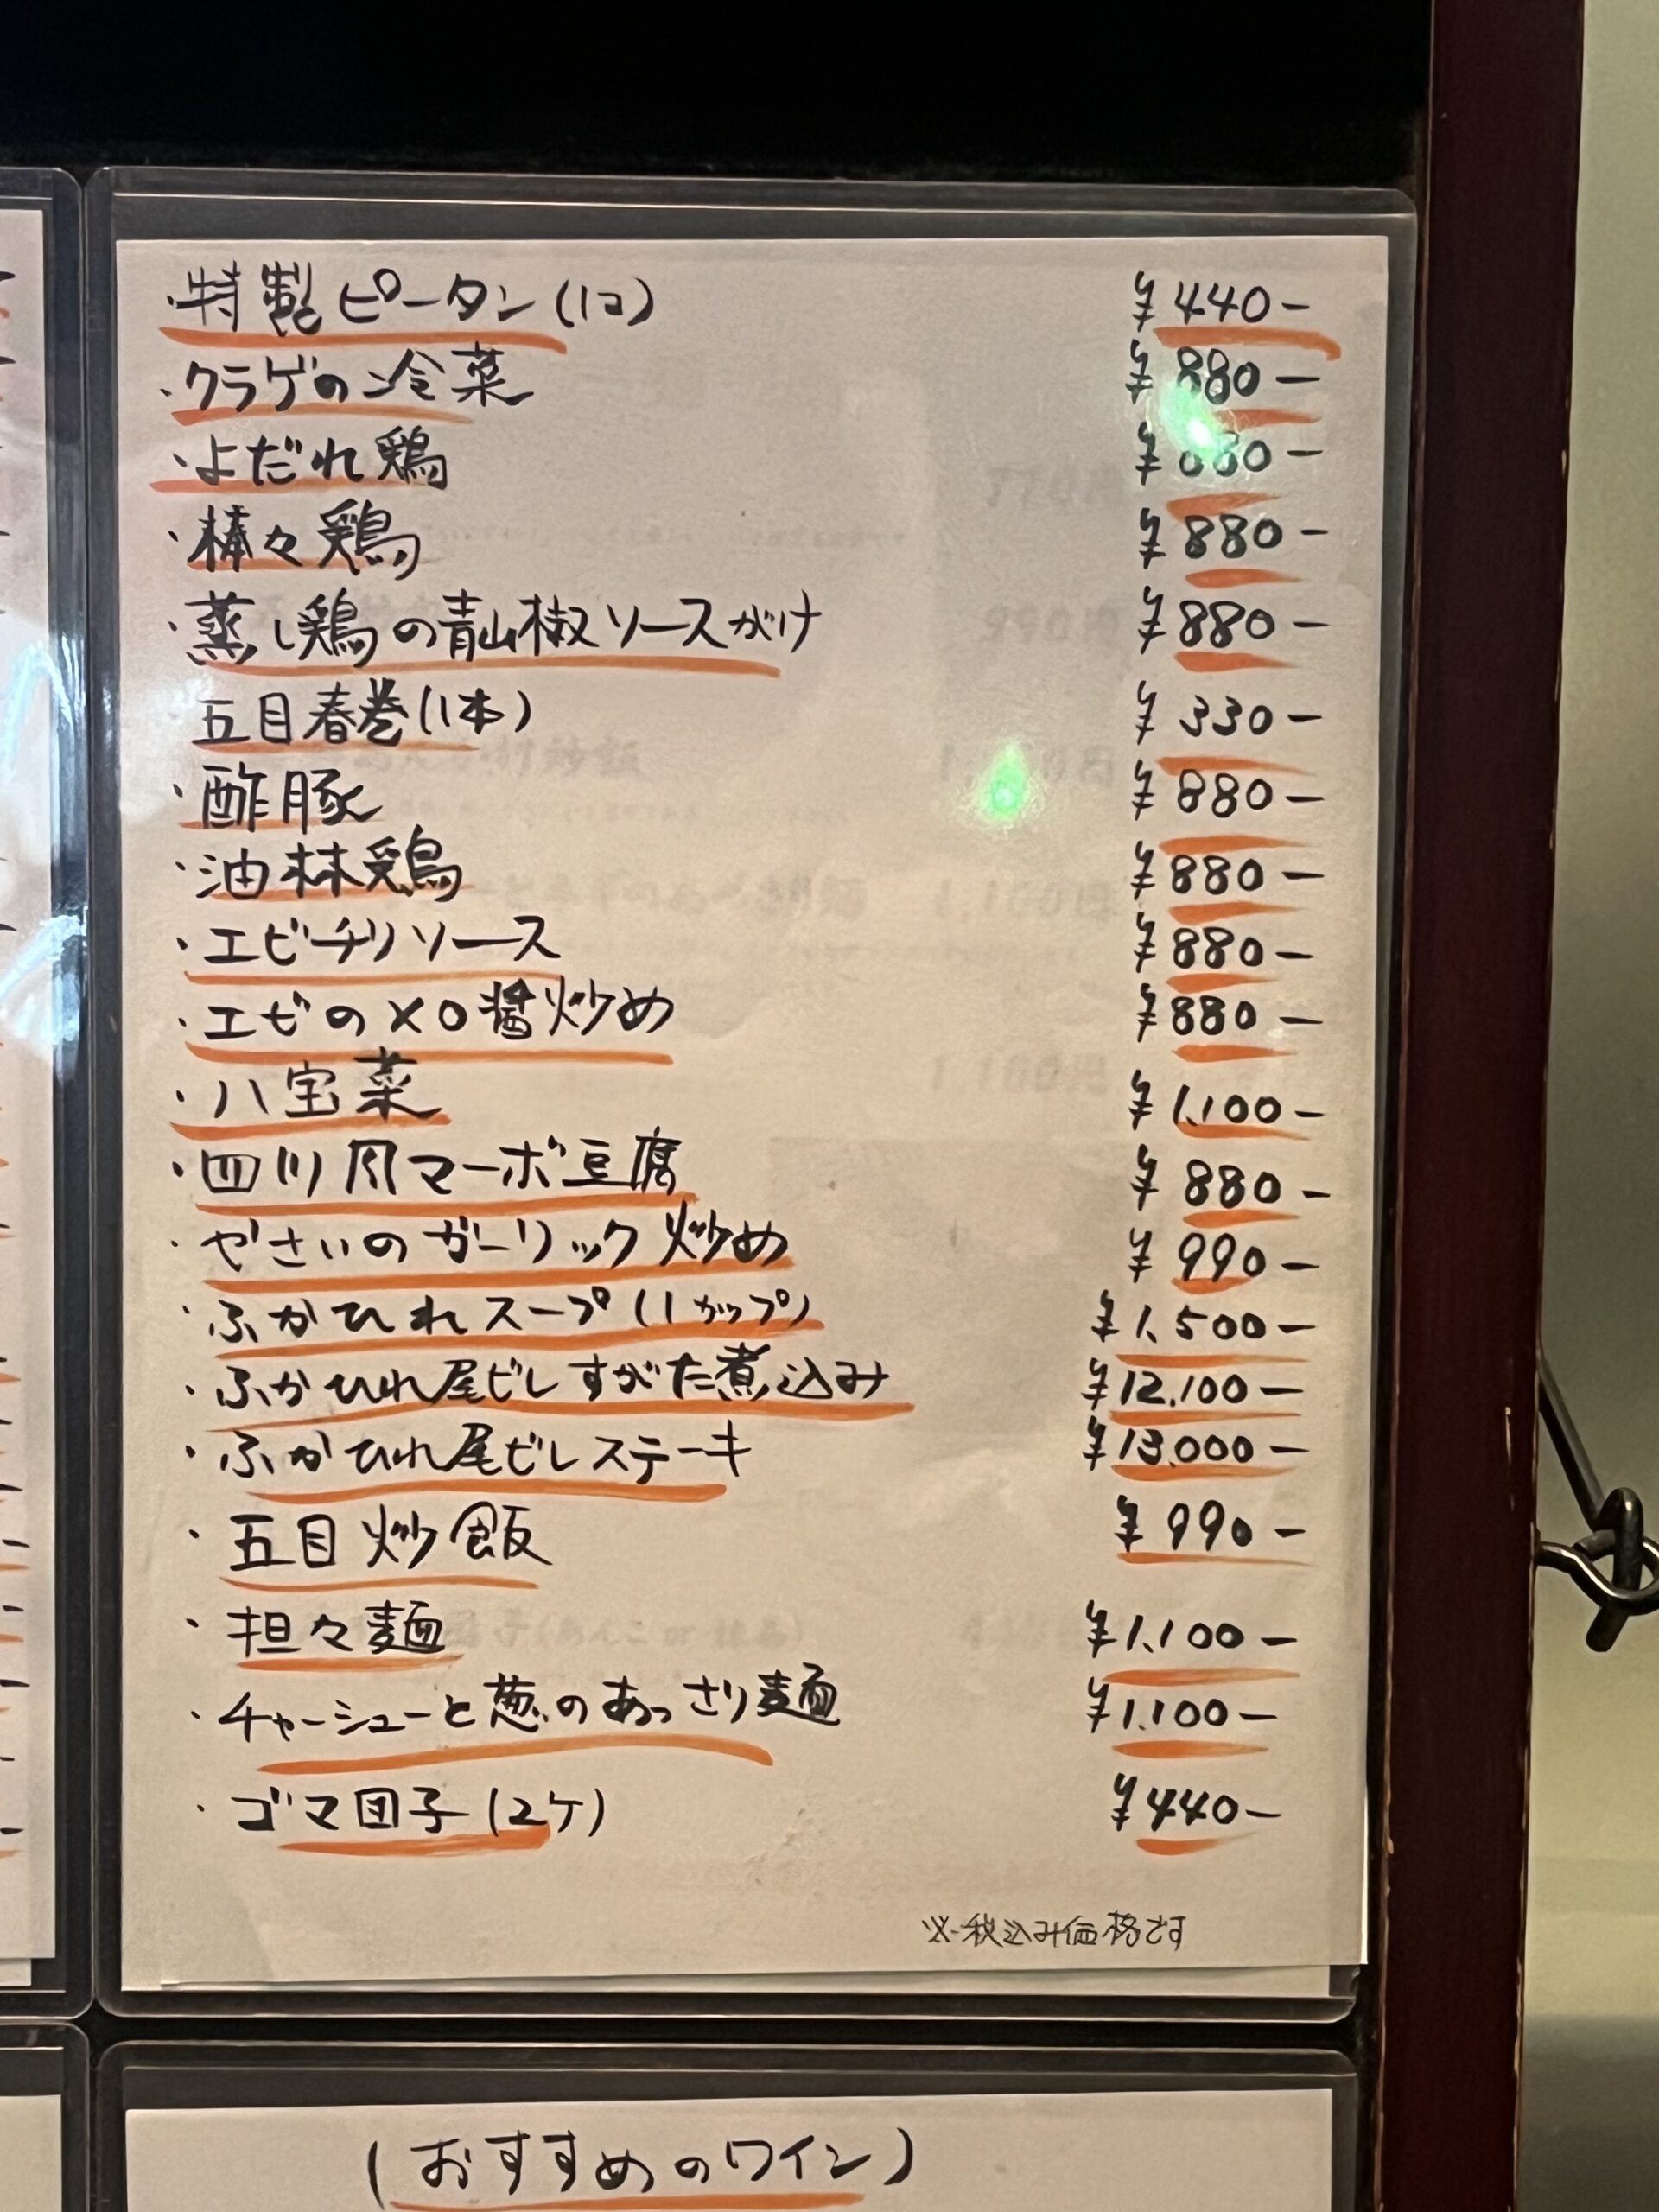 ・特製ピータン(1コ) ¥440-
・クラゲの冷菜 ¥880-
・よだれ鶏 ¥880-
・棒々鶏 ¥880-
・蒸し鶏の青山椒ソースがけ ¥880-
五目春巻(1本) ¥330-
・酢豚 ¥880-
・油林鶏 ¥880-
・エビチリソース ¥880-
・エビのXO醤炒め ¥880-
・八宝菜 ¥1,100-
・四川風マーボ豆腐 ¥880-
・やさいのガーリック炒め ¥990-
・ふかひれスープ(1カップ) ¥1,500-
・ふかひれ尾ビレすがた煮込み ¥12,100-
・ふかひれ尾ビレステーキ ¥13,000-
・五目炒飯 ¥990-
・担々麺 ¥1,100-
・チャーシューと葱のあっさり麺 ¥1,100-
・ゴマ団子(2ケ) ¥440-
※税込み価格です
(おすすめのワイン)